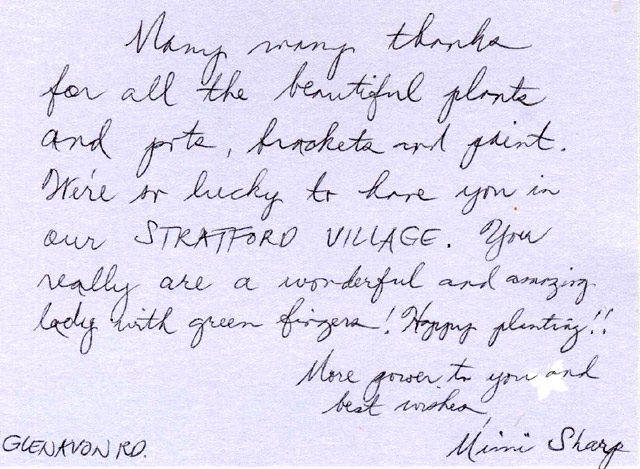 Many many thanks
for all the beautiful plants
and pots, brackets and paint.
We're so lucky to have you in
our STRATFORD VILLAGE. You
really are a wonderful and amazing
lady with green fingers! Happy planting!!
More power to you and
best wishes,
Mimi Sharp
GLENAVON RD.